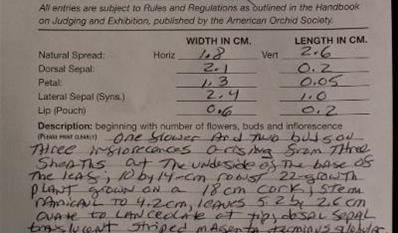 All entries are subject to Rules and Regulations as outlined in the Handbook
on Judging and Exhibition, published by the American Orchid Society.
WIDTH IN CM. LENGTH IN CM.
Natural Spread: Horiz 1.8 Vert 2.6
Dorsal Sepal: 2.1 0.2
Petal: 1.3 0.05
Lateral Sepal (Syns.) 2.4 1.0
Lip (Pouch) 0.6 0.2
Description: beginning with number of flowers, buds and inflorescence
(PLEASE PRINT CLEARLY) one flower and two buds on
Three inflorescences arising from Three
Sheaths at the underside of the base of
the leaf; 10 by 14-cm robust 22-growth
plant grown on a 18 cm cork; stem
ramicaul to 4.2cm, leaves 5.2 by 2.6 cm
ovate to lanceolate at tip; dosal sepal
translucent striped magenta